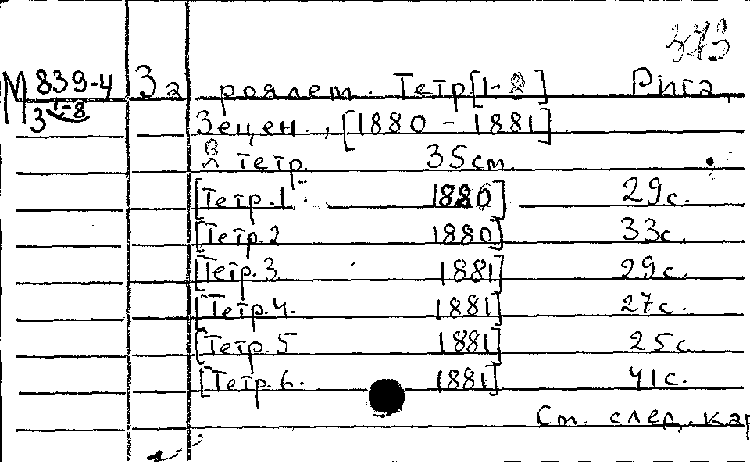 373
М 839-4 За роялем. Тетр [1-8] Рига,
З 1-8 Зецен., [1880 - 1881]
8 тетр. 35 см.
[Тетр. 1 1880] 29 с.
[Тетр. 2 1880] 33 с.
[Тетр. 3 1881] 29 с.
[Тетр. 4. 1881] 27 с.
[Тетр. 5 1881] 25 с.
[Тетр. 6. 1881] 41 с.
См. след. кар